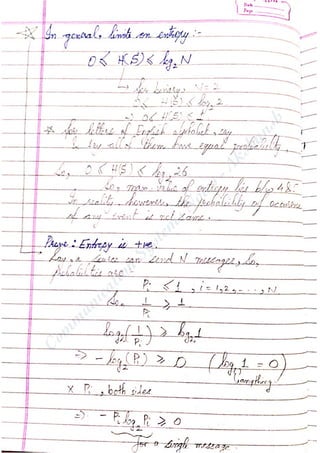 In general, limits on entropy :-
0 ≤ H(S) ≤ log₂ N
for binary, N = 2
0 ≤ H(S) ≤ log₂ 2
⇒ 0 ≤ H(S) ≤ 1
* for letters of English alphabet, say
& say all of them have equal probability,
So, 0 ≤ H(S) ≤ log₂ 26
So, max. value of entropy lies b/w 4 & 5
In reality, however, the probability of occurence
of any event is not same.
Prove : Entropy is +ve.
Say, a source can send N messages, So,
Probabilities are
Pi ≤ 1 , i = 1, 2, - - - , N
So, 1/Pi ≥ 1
log₂(1/Pi) ≥ log₂ 1
⇒ - log₂ (Pi) ≥ 0 (log 1 = 0)
anything
x Pi , both sides
⇒ - Pi log₂ Pi ≥ 0
for a single message